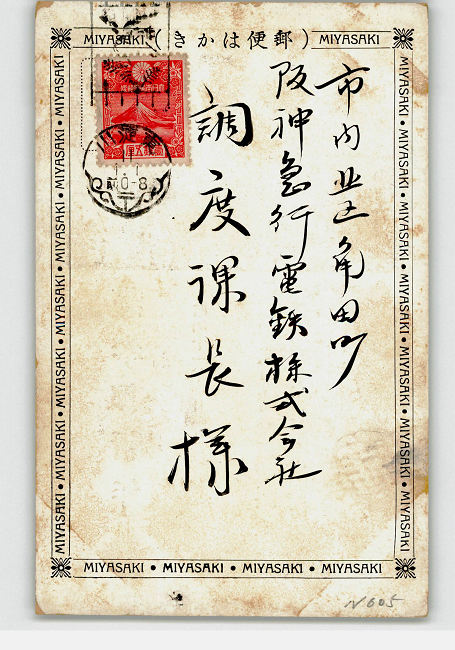 MIYASAKI (郵便はかき) MIYASAKI
市内北区角田町
阪神急行電鉄株式会社
調度課長様
1.1
前0-8
MIYASAKI • MIYASAKI • MIYASAKI • MIYASAKI • MIYASAKI • MIYASAKI • MIYASAKI
MIYASAKI • MIYASAKI • MIYASAKI • MIYASAKI • MIYASAKI • MIYASAKI • MIYASAKI
MIYASAKI • MIYASAKI • MIYASAKI • MIYASAKI
N605